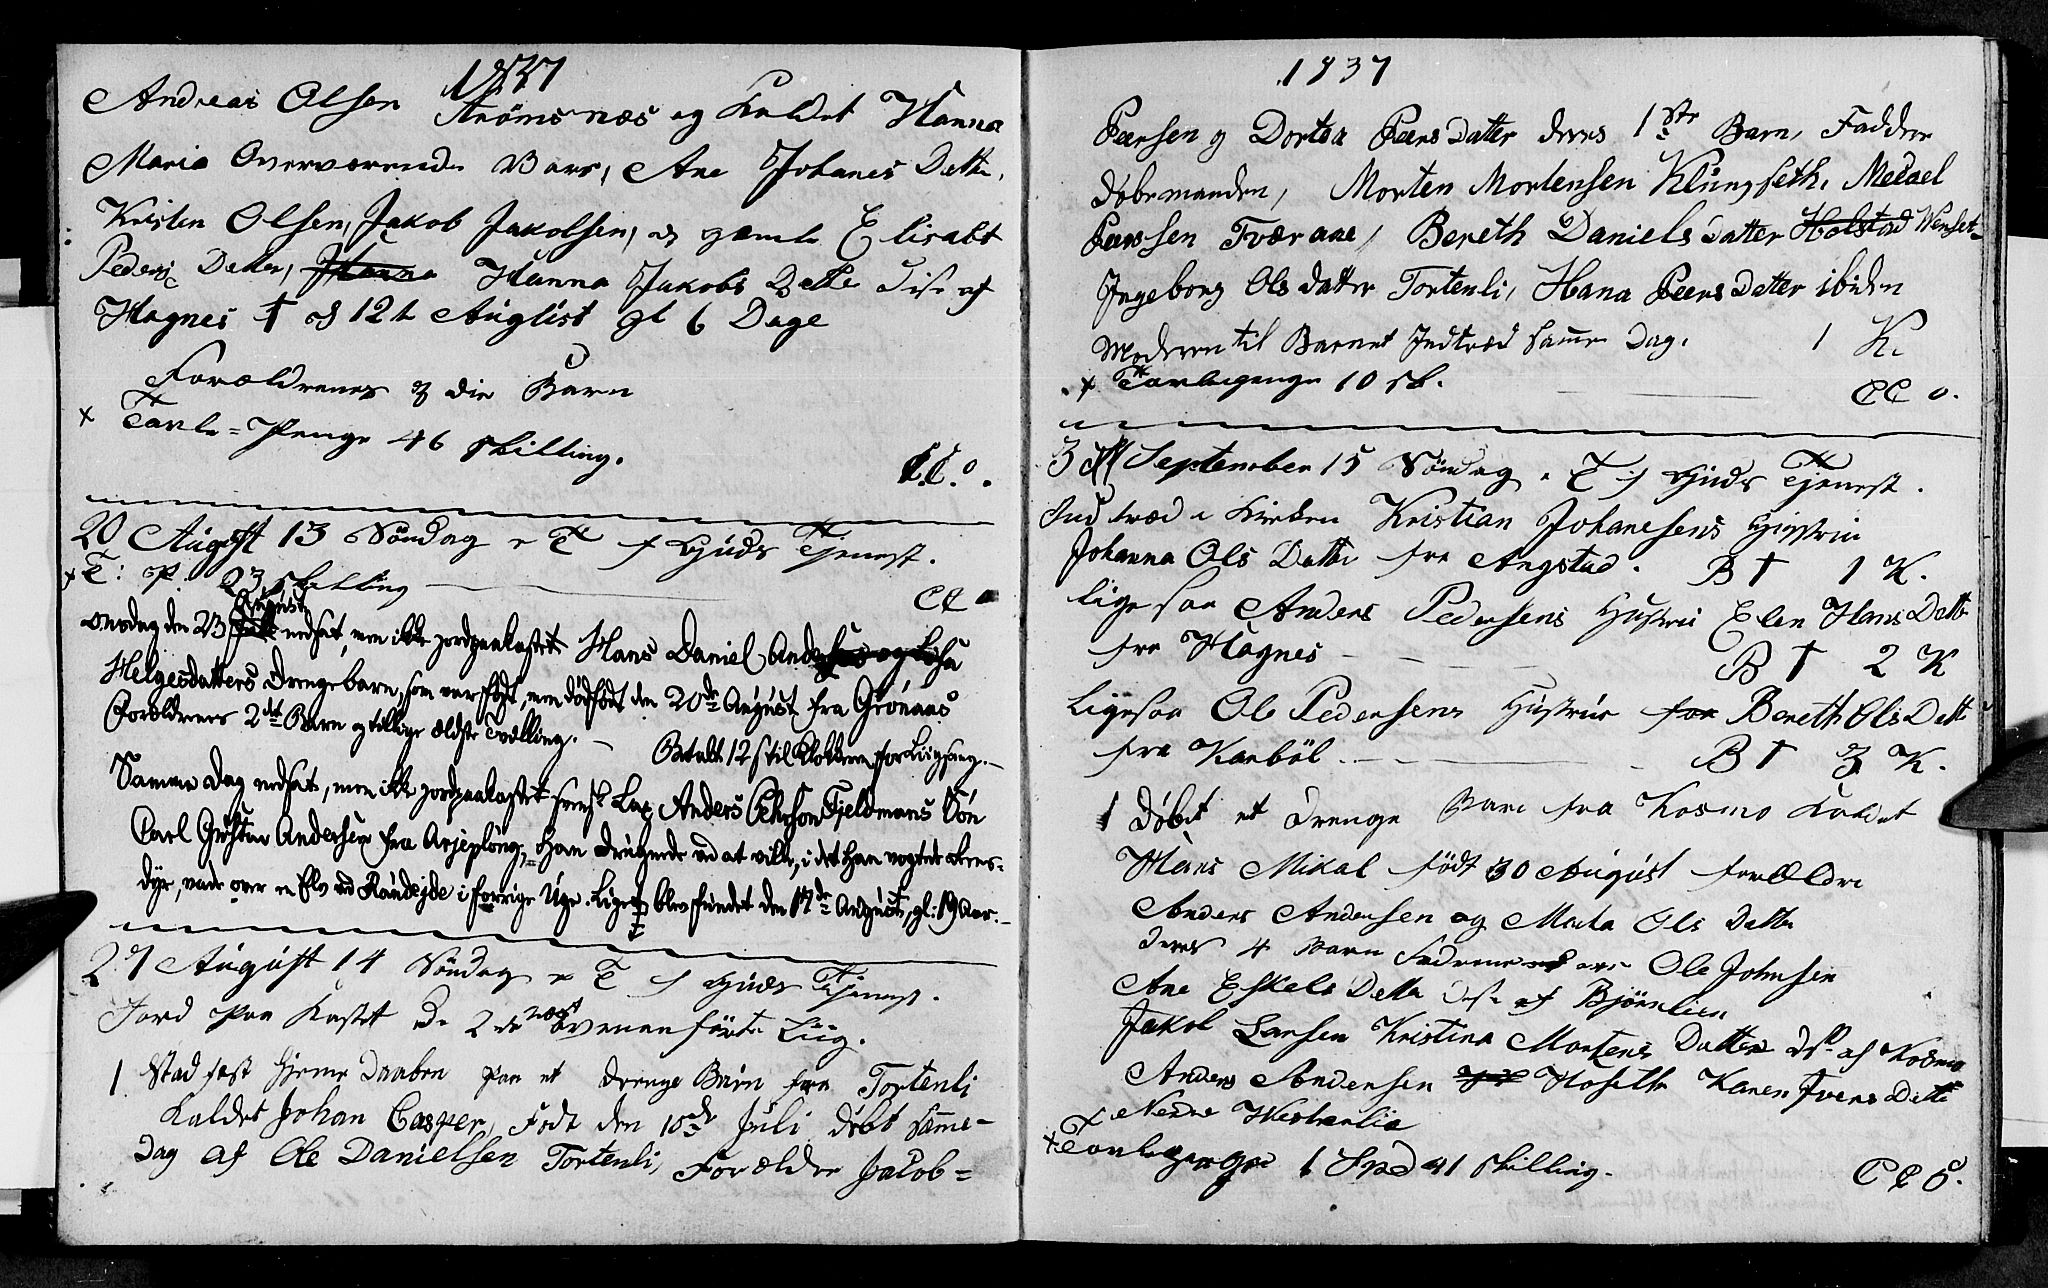 1837
Andreas Olsen Strömsnæs og Kaldet Hanna
Maria Overværende Vare, Ane Johanes Datter,
Kristen Olsen, Jakob Jakobsen, og gamle Elisabt
Peders Datter, Hanna Jakobs Datter Disse af
Hagnes † d 12te August gl 6 Dage
Forældrenes 3die Barn
x Tavle-Penge 46 Skilling.
C.C.o.
20 August 13 Söndag e T f Guds Tjenest.
x T: P. 23 Skilling
CC o
August
Onsdag den 23 nedsat, men ikke jordpaakastet Hans Daniel og Losa
Helgesdatters Drengebarn, som var født, men dødfødt den 20de August fra Grönaas
Forældrenes 2det Barn og tillige ældste Tvilling. — Betalt 12 s til Klokkeren for Liigsang. —
Samme Dag nedsat, men ikke jordpaakastet svensk Lap Anders Pehrson Fjeldmans Sön
Carl Gustav Andersen fra Arjeplöug, Han druknede ved at ville, i det han vogtede deres
dyr, vade over en Elv ved Randejde i forrige Uge. Liget blev fundet den 17de August, gl: 19 Aar. —
27 August 14 Söndag e T f Guds Tjenest.
Jord Paa Kastet de 2de næst ovenanförte Liig.
1 Stadfæst Hjemme Daaben paa et Drenge Barn fra Tortenli
Kaldet Johan Casper, Födt den 10de Juli döbt samme-
Dag af Ole Danielsen Tortenli, Forældre Jacob-
1837
Peersen og Dortea Peers Datter deres 1ste Barn, Faddere
Döbemanden, Morten Mortensen Klungseth, Mekael
Peersen Tværaae, Bereth Daniels Datter Holstad Venset-
Ingeborg Ols Datter Tortenli, Hana Peers Datter ibiden
Moderen til Barnet Indtræd samme Dag. 1 K.
x Tavlepenge 10 sk.
CC o.
3 September 15 Söndag e T f Guds Tjenest.
Indtræd i Kirken Kristian Johanesens Hustrue
Johanna Ols Datter fra Angstad. B † 1 K.
ligesaa Anders Pedersens Hustrue Elen Hans Datter
fra Hagnes — B † 2 K
Ligesaa Ole Pedersens Hustrue fra Bereth Ols Datt
fra Kanböl — B † 3 K.
1 Döbt et Drenge Barn fra Kosmo Kaldet
Hans Mikal födt 30 August forældre
Anders Andersen og Marta Ols Datter
Deres 4 Barn Fadrene vare Ole Johnsen
Ane Eskels Datter Disse af Björnlien
Jakob Larsen Kristina Mortens Datter ds. af Kosmo
Anders Andersen Hoseth Karen Ivers Datter
Nedre Westerlie
x Tavlepenge 1 Spd 41 Skilling.
C C o.